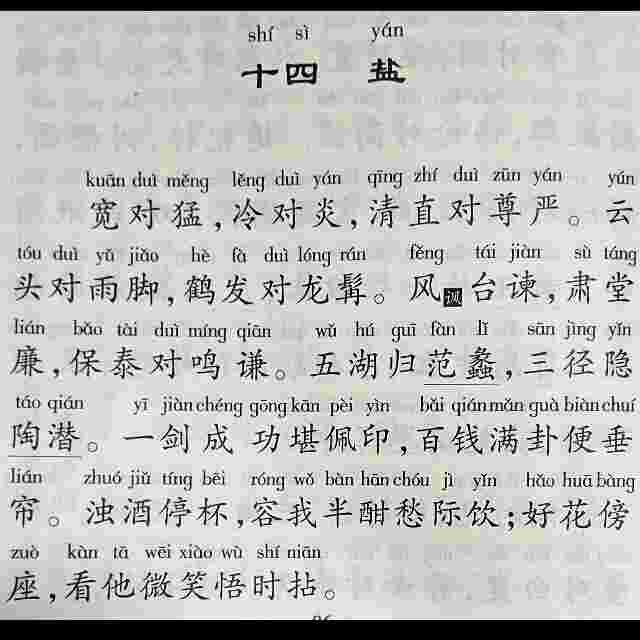 shí sì yán
十四 盐
kuān duì měng lěng duì yán qīng zhí duì zūn yán yún
宽对猛,冷对炎,清直对尊严。云
tóu duì yǔ jiǎo hè fà duì lóng rán fěng tái jiàn sù táng
头对雨脚,鹤发对龙髯。风讽台谏,肃堂
lián bǎo tài duì míng qiān wǔ hú guī fàn lǐ sān jìng yǐn
廉,保泰对鸣谦。五湖归范蠡,三径隐
táo qián yī jiàn chéng gōng kān pèi yìn bǎi qián mǎn guà biàn chuí
陶潜。一剑成功堪佩印,百钱满卦便垂
lián zhuó jiǔ tíng bēi róng wǒ bàn hān chóu jì yǐn hǎo huā bàng
帘。浊酒停杯,容我半酣愁际饮;好花傍
zuò kàn tā wēi xiào wù shí niān
座,看他微笑悟时拈。